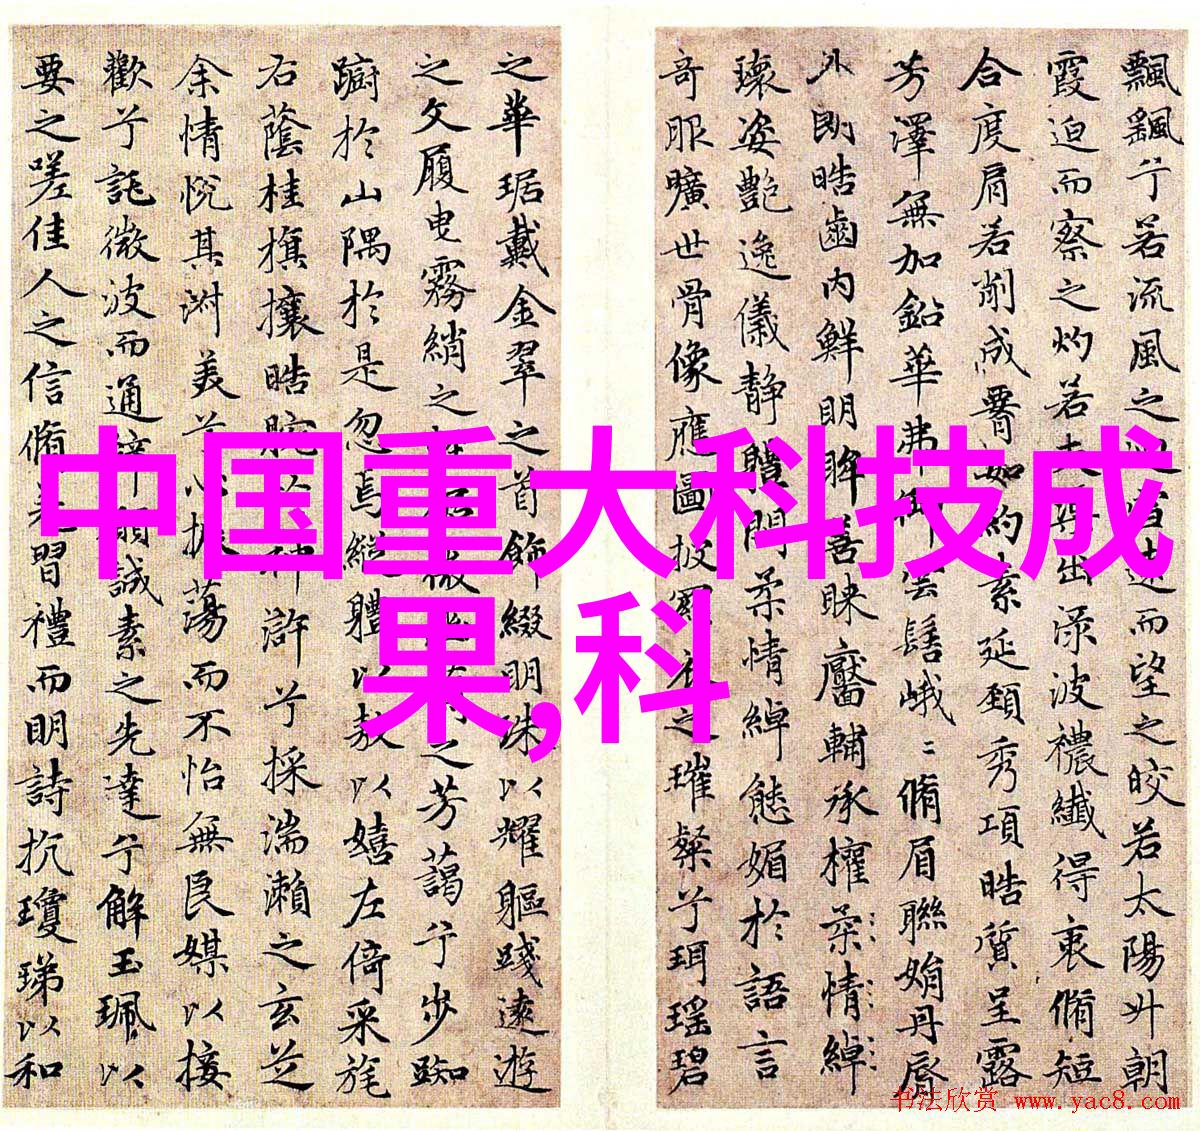 飄颻兮若流風之而望之皎若太陽升朝
霞迫而察之灼若出淥波禯纖得衷脩短
合度肩若削成如約素延頸秀項皓質呈露
芳澤無加鉛華弗御雲髻峨〻脩眉聯娟丹唇
外朗皓齒内鮮明眸善睞靨輔承權柔情綽
瓌姿艷逸儀靜體閑柔情綽態媚於語言
奇服曠世骨像應圖披羅衣之璀粲兮珥瑶碧
之華琚戴金翠之首飾綴明珠以耀軀踐遠遊
之文履曳霧綃之之芳藹兮步踟
躕於山隅於是忽焉縱體以敖以嬉左倚采旄
右蔭桂旗攘皓腕於神滸兮採湍瀨之玄芝
余情悅其淑美兮心振蕩而不怡無良媒以接
歡兮託微波而通辭願誠素之先達兮解玉珮以
要之嗟佳人之信脩羌習禮而明詩抗瓊珶以和
中国重大科技成
果,科
书法欣赏 www.yac8.com